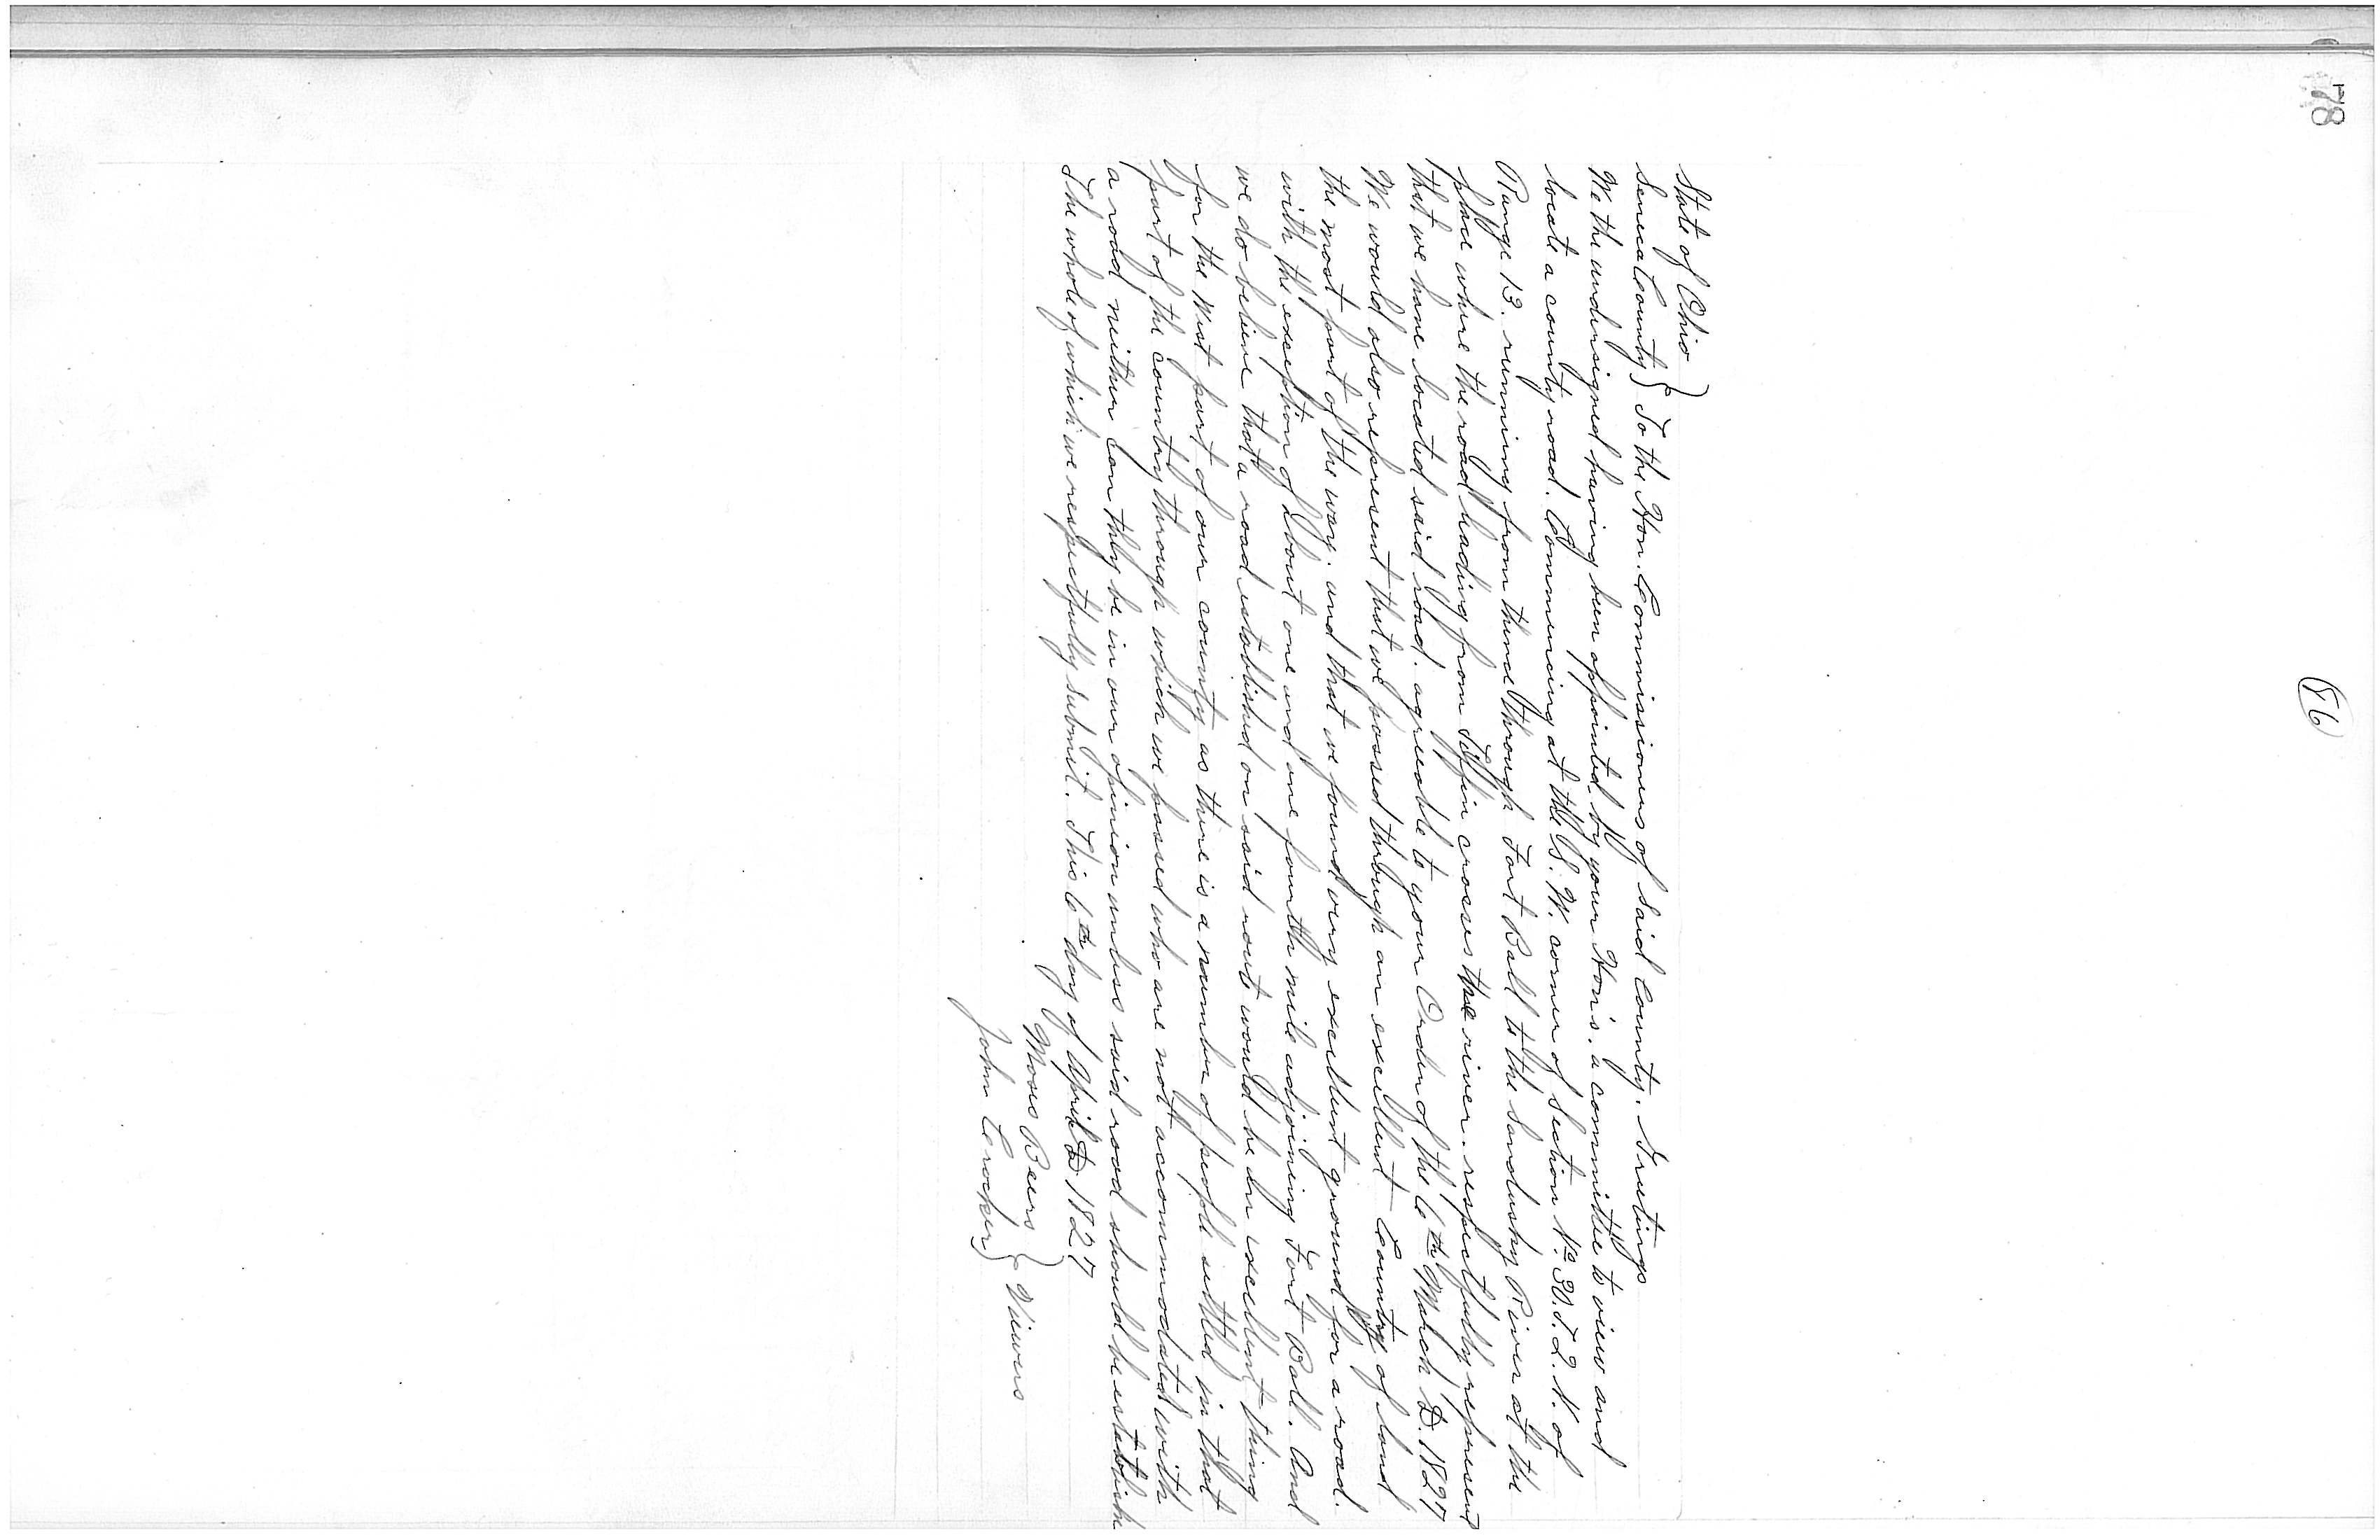 78
(86)
State of Ohio }
Seneca County } To the Hon. Commissioners of Said County. Greetings
We the undersigned having been appointed by your Hon's. a committee to view and
locate a county road. Commencing at the S. W. corner of Section No. 30. T. 2. N. of
Range 13. running from thence through Fort Ball to the Sandusky River at the
place where the road leading from Tiffin crosses the river. respectfully represent
that we have located said road. agreeable to your Order of the 6th March D. 1827
We would also represent that we passed through an excellent Country of land
the most part of the way. and that we found very excellent ground for a road.
with the exception of about one and one fourth mile adjoining Fort Ball. And
we do believe that a road established on said route would be an excellent thing
for the West part of our county as there is a number of people settled in that
part of the country through which we passed who are not accommodated with
a road neither can they be in our opinion unless said road should be establish
The whole of which we respectfully submit. This 6th day of April D 1827
Moses Beers }
John Crocker } Viewers